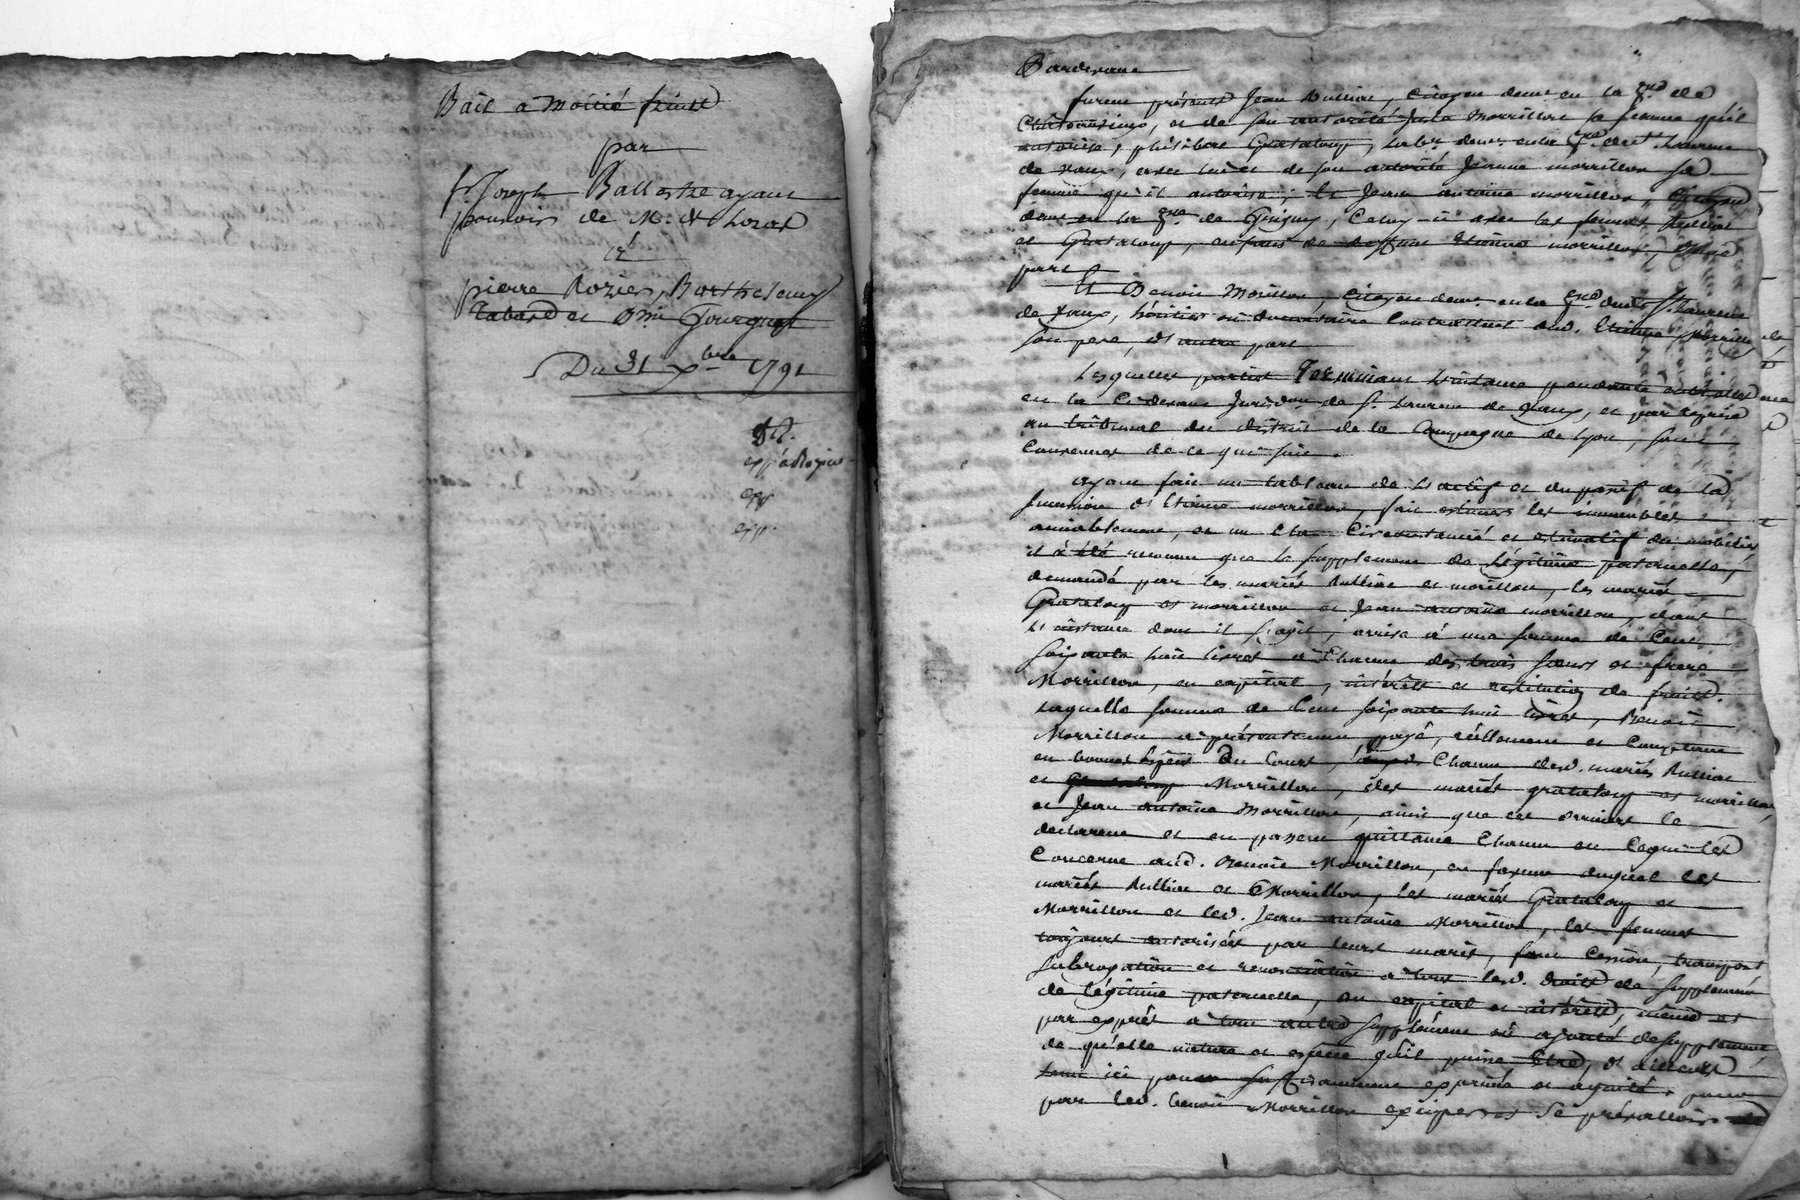 Bail a Moitié fruits
par
Sr. Joseph Ballestre ayant
pouvoir de Mr.
et
pierre Rozier, Barthelemy
Tabard et
Du 31 xbre 1791
exp.
exp.
furent présents Jean Rullion, Citoyen demt. en la de
et de son autorité Morrillon sa femme qu'il
autorise, Grataloup, demt. en la de St. Laurent
de Vaux, avec lui et de son autorité Jeanne Morrillon sa
femme qu'il autorise, Et Jean antoine morrillon, Citoyen
demt. en la de avec les femmes Rullion
et Grataloup, enfans de deffunt Etienne morrillon, d'une
part
Et Benoit Morillon, Citoyen demt. en la de St. Laurent
de Vaux, héritier Contractuel dud. Etienne Morrillon
son pere, d'autre part
Lesquelles parties Terminant L'instance pendante
en la Cidevant Jurisdon. de St. Laurent de Vaux, et par
au tribunal du District de la Campagne de Lyon, sont
Convenues de ce qui suit.
ayant fait un tableau de L'actif et du passif de la
sucession d'Etienne morrillon, fait estimer les immeubles
amiablement, et un Etat Circonstancié et estimatif du mobilier
il a été reconnu que le supplement de Légitime paternelle,
demandé par les mariés Rullion et morillon, les mariés
Grataloup et morrillon et Jean antoine morrillon, dans
L'instance dont il s'agit, arrive à une somme de Cent
soixante huit livres à Chacun des trois soeurs et frere
Morrillon, en capital, intérêts et restitution de fruits.
Laquelle somme de Cent soixante huit livres, Benoit
Morrillon a présentement payé, réellement et Comptant
en bonnes Espèces du Cours, Chacun desd. mariés Rullion
et Morrillon, des mariés grataloup et morrillon,
et Jean antoine Morrillon, ainsi que ces derniers le
déclarent et en passent quittance Chacun en Ce qui les
Concerne aud. Benoit Morrillon, en faveur duquel les
mariés Rullion et Morrillon, les mariés Grataloup et
Morrillon et led. Jean antoine Morrillon, les femmes
toujours autorisées par leurs maris, font Cession, transport
subrogation et renonciation à tous lesd. droits de supplement
de légitime paternelle, en capital et intérêts, même et
par exprès à tout autre supplément ou ajouté de supplement
de qu'elle nature et espece qu'il puisse Etre, et
ici pour suffisamment exprimé et ajouté, pour
par led. benoit Morrillon exciper et se prévalloir